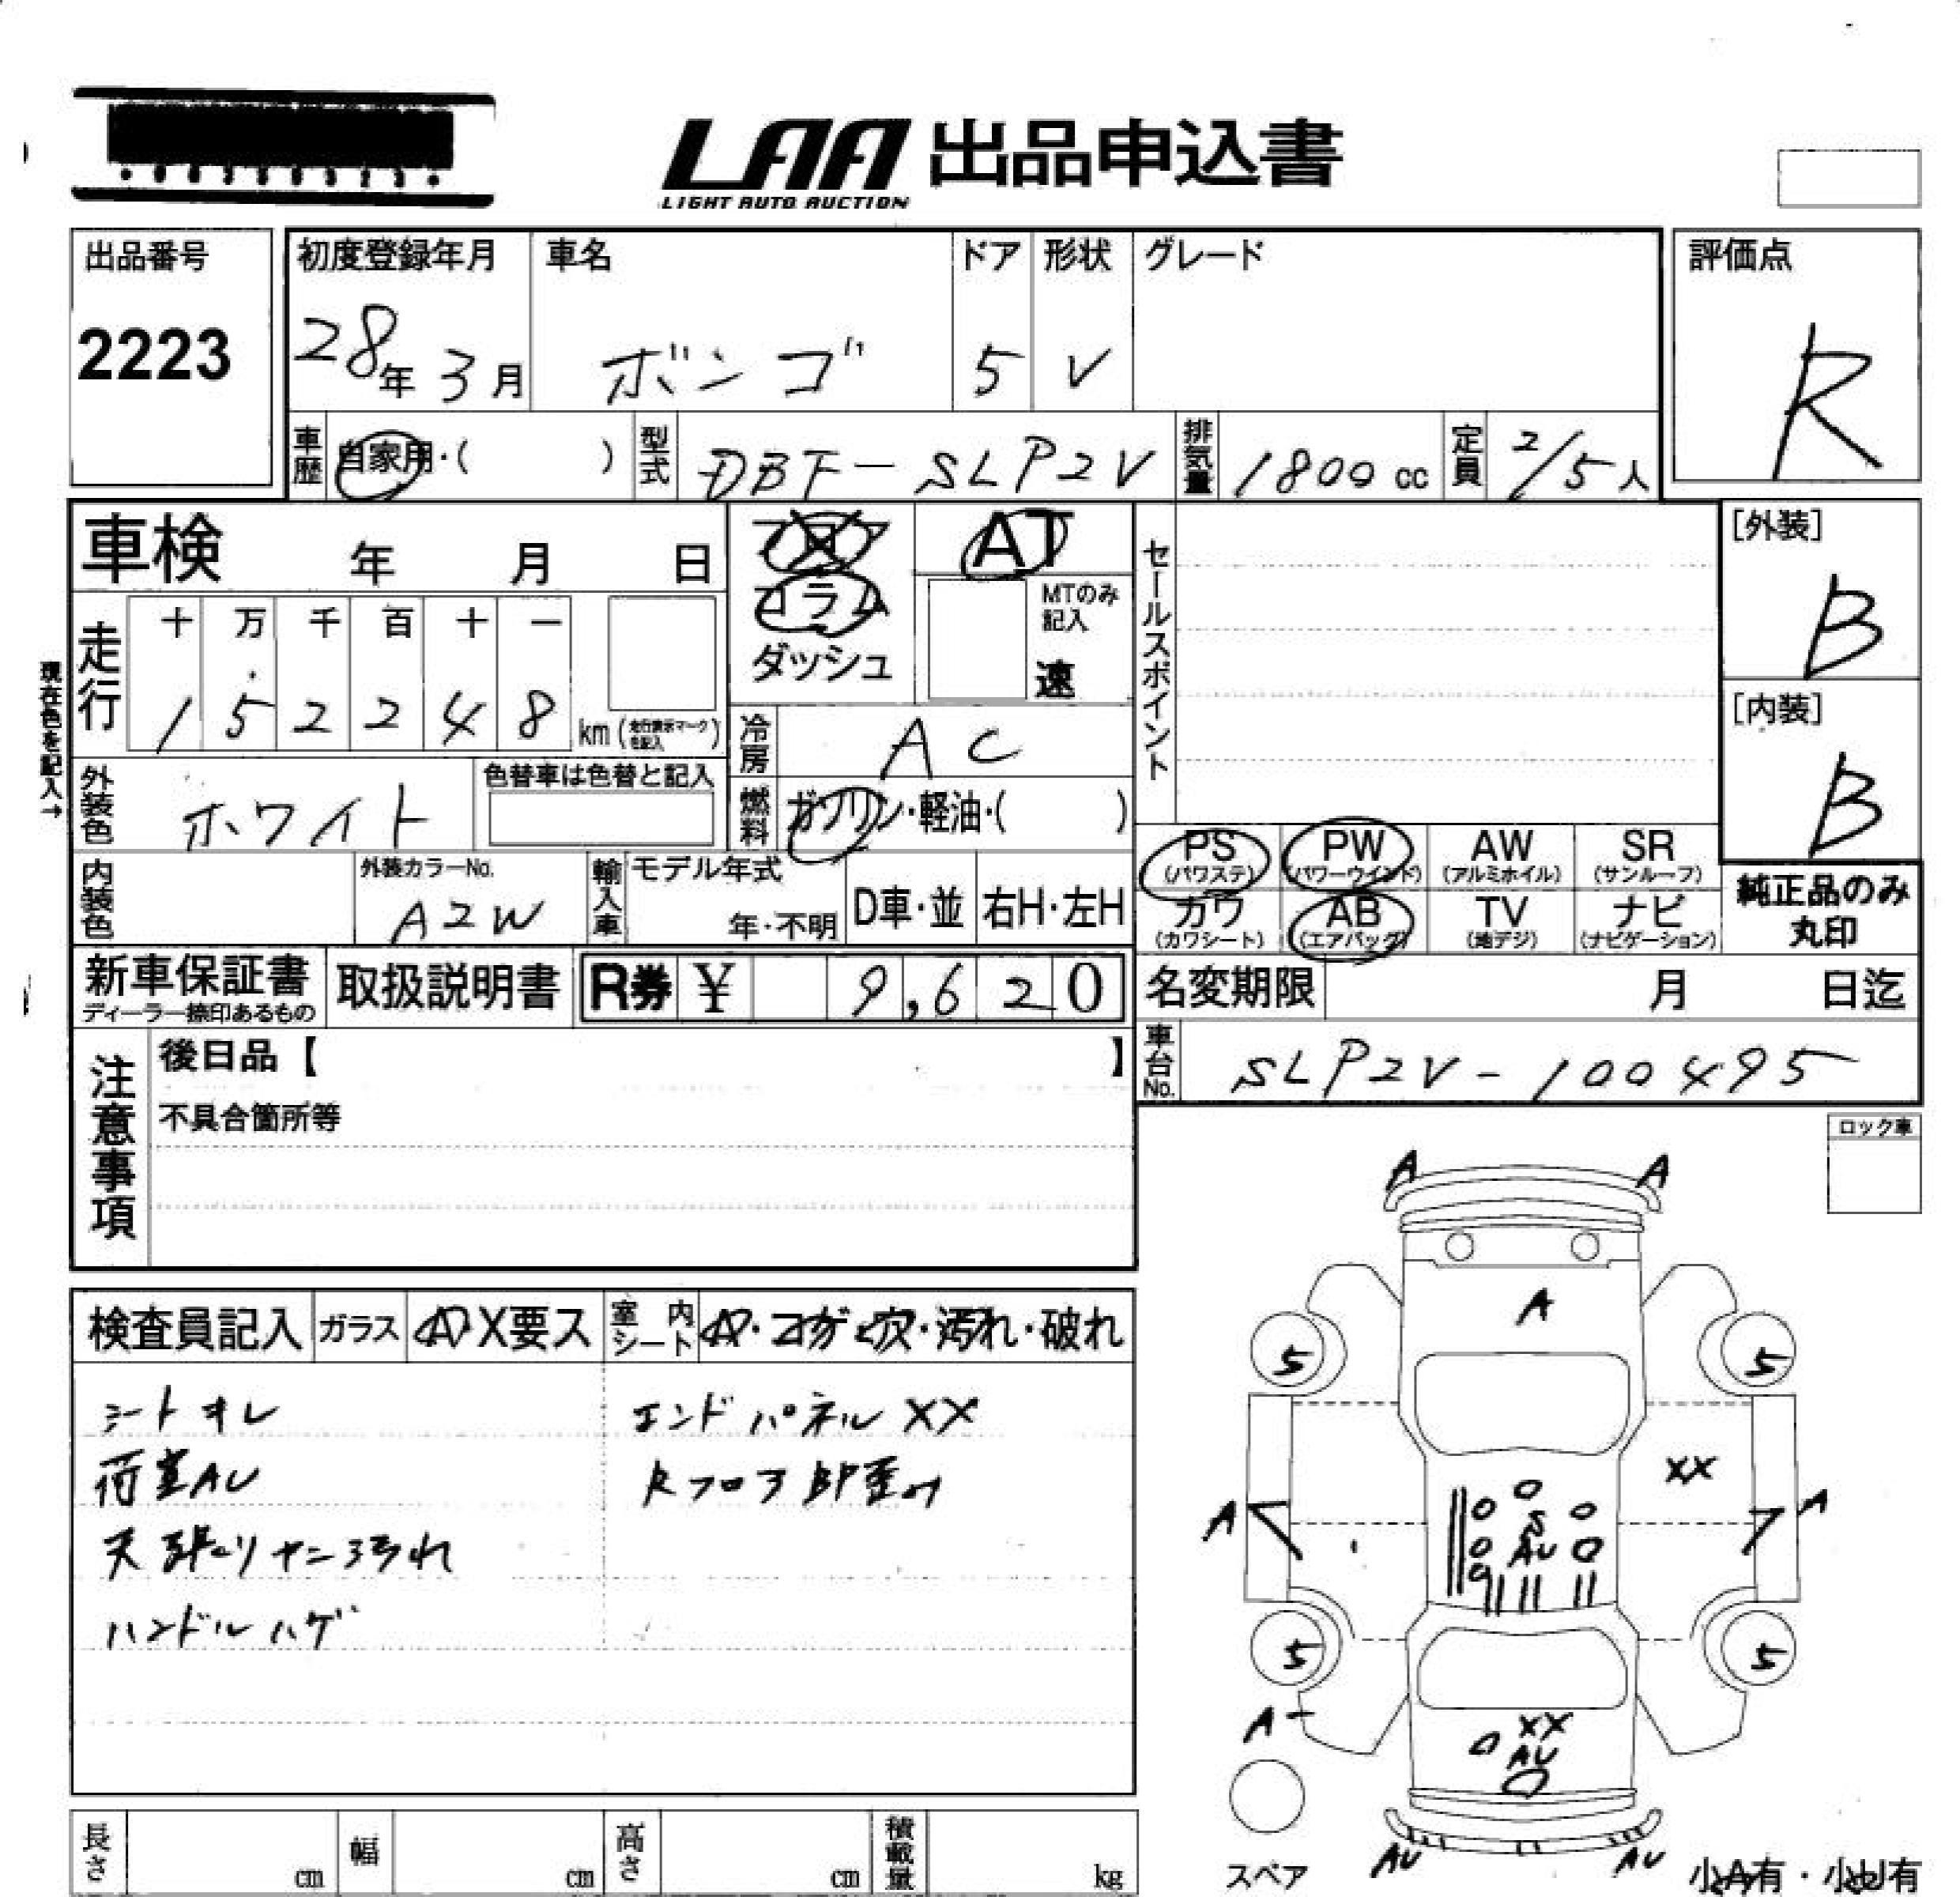 LAA 出品申込書
LIGHT AUTO AUCTION
出品番号
2223
初度登録年月
28年 3月
車名
ボンゴ
ドア
5
形状
V
グレード
評価点
R
車歴 自家用・( )
型式 DBF-SLP2V
排気量 1800 cc
定員 2/5人
車検 年 月 日
フロア
コラム
ダッシュ
AT
MTのみ
記入
速
セールスポイント
[外装]
B
[内装]
B
現在色を記入→
走行
十 万 千 百 十 一
1 5 2 2 4 8 km (走行表示マークを記入)
冷房 AC
外装色 ホワイト
色替車は色替と記入
燃料 ガソリン・軽油・( )
PS (パワステ)
PW (パワーウインド)
AW (アルミホイル)
SR (サンルーフ)
カワ (カワシート)
AB (エアバッグ)
TV (地デジ)
ナビ (ナビゲーション)
純正品のみ
丸印
内装色
外装カラーNo.
A2W
輸入車
モデル年式
年・不明
D車・並
右H・左H
新車保証書
ディーラー捺印あるもの
取扱説明書
R券 ¥ 9,620
名変期限 月 日迄
車台No. SLP2V-100495
注意事項
後日品【 】
不具合箇所等
ロック車
検査員記入
ガラス
A・X要ス
室内シート
A・コゲ・穴・汚れ・破れ
シートオレ
エンドパネルXX
荷室AU
Rフロア部歪み
天張りヤニ汚れ
ハンドルハゲ
A A
A
5 5
XX
A A
S
AU
5 5
A
XX
AU
AU AU
スペア
小A有・小U有
長さ cm
幅 cm
高さ cm
積載量 kg